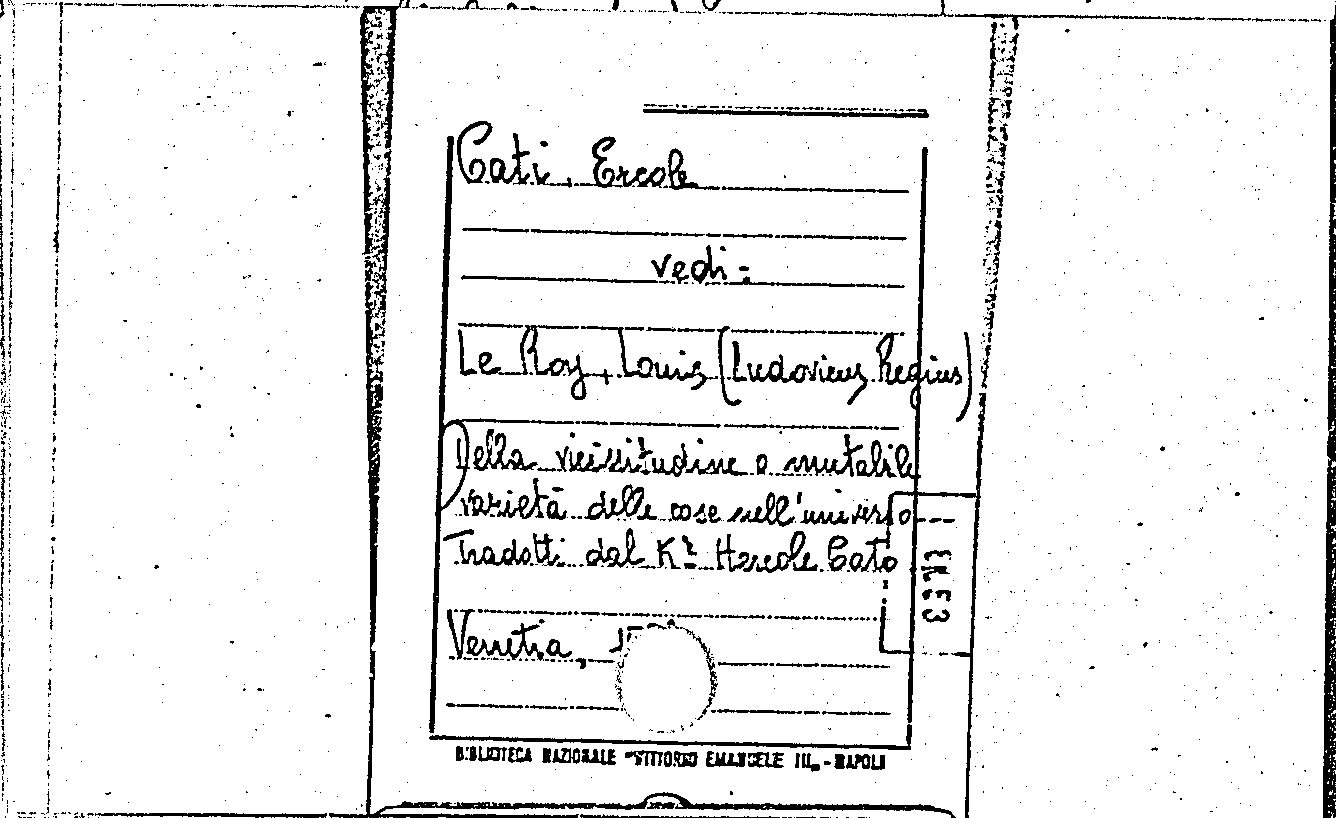 Cati, Ercole
vedi:
Le Roy, Louis (Ludovicus Regius)
Della vicissitudine o mutabile
varietà delle cose nell'universo
Tradotti dal K.r Hercole Cato
Venetia,
BIBLIOTECA NAZIONALE "VITTORIO EMANUELE III„ - NAPOLI